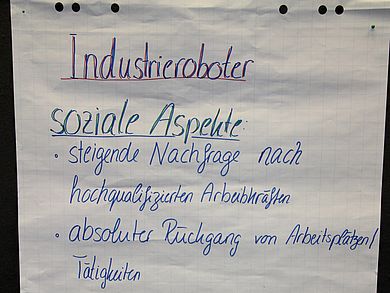 Industrieroboter
soziale Aspekte:
• steigende Nachfrage nach
hochqualifizierten Arbeitkräften
• absoluter Rückgang von Arbeitsplätzen/
Tätigkeiten